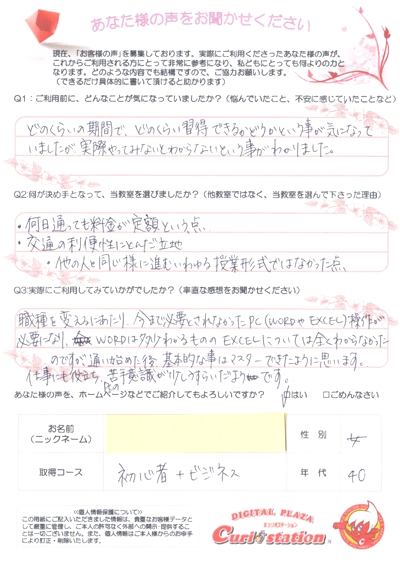 あなた様の声をお聞かせください
現在、「お客様の声」を募集しております。実際にご利用くださったあなた様の声が、
これからご利用される方にとって非常に参考になり、私どもにとっても何よりの力と
なります。どのような内容でも結構ですので、ご協力お願いします。
（できるだけ具体的に書いて頂けると助かります）
Q1：ご利用前に、どんなことが気になっていましたか？（悩んでいたこと、不安に感じていたことなど）
どのくらいの期間で、どのくらい習得できるかどうかという事が気になって
いましたが実際やってみないとわからないという事がわかりました。
Q2:何が決め手となって、当教室を選びましたか？（他教室ではなく、当教室を選んで下さった理由）
・何日通っても料金が定額という点、
・交通の利便性にとんだ立地
・他の人と同じ様に進むいわゆる授業形式ではなかった点、
Q3:実際にご利用してみていかがでしたか？（率直な感想をお聞かせください）
職種を変えるにあたり、今まで必要とされなかったPC(WORDやEXCEL)操作が
必要になり、WORDは多少わかるものの EXCELについては全くわからなかった
のですが、通い始めた後、基本的な事はマスターできたように思います。
仕事にも役立ち、苦手意識が少しうすらいだようです。
あなた様の声を、ホームページなどでご紹介してもよろしいですか？ □はい □ごめんなさい
お名前
（ニックネーム）
性別
女
取得コース
初心者＋ビジネス
年代
40
≪個人情報保護について≫
この用紙にご記入いただきました情報は、貴重なお客様データと
して厳重に管理し、ご本人の許可なく外部への開示・提供すること
は一切ございません。また、個人情報はご本人様からのお申し出
により訂正・削除いたします。
DIGITAL PLAZA
キュリオステーション
Curio station